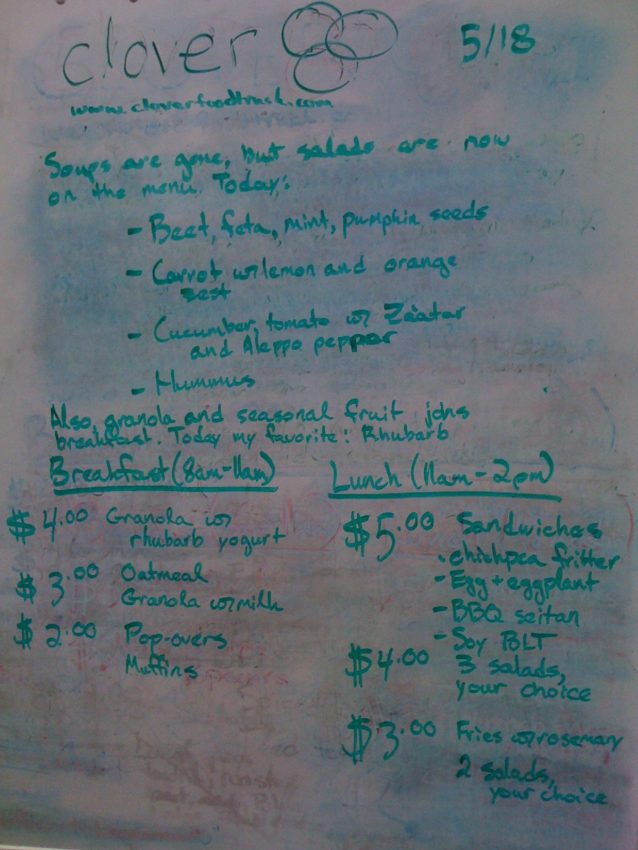 clover
5/18
www.cloverfoodtruck.com
Soups are gone, but salads are now
on the menu. Today:
- Beet, feta, mint, pumpkin seeds
- Carrot w/ lemon and orange
zest
- Cucumber, tomato w/ Za'atar
and Aleppo pepper
- Hummus
Also, granola and seasonal fruit johs
breakfast. Today my favorite: Rhubarb
Breakfast (8am-11am)
$4.00 Granola w/
rhubarb yogurt
$3.00 Oatmeal
Granola w/ milk
$2.00 Pop-overs
Muffins
Lunch (11am-2pm)
$5.00 Sandwiches
- chickpea fritter
- Egg + eggplant
- BBQ seitan
- Soy BLT
$4.00 3 salads,
your choice
$3.00 Fries w/ rosemary
2 salads,
your choice